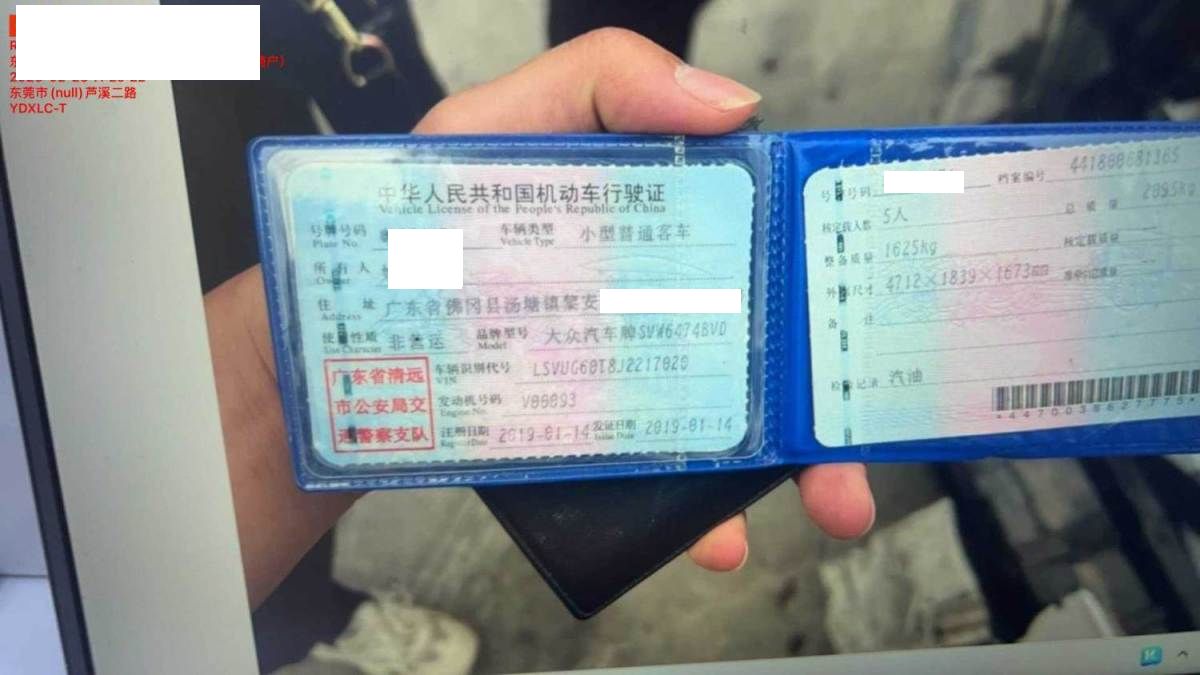 户）
东莞市 (null) 芦溪二路
YDXLC-T
中华人民共和国机动车行驶证
Vehicle License of the People's Republic of China
号牌号码 车辆类型 小型普通客车
Plate No. Vehicle Type
所有人
Owner
住址 广东省佛冈县汤塘镇黎安
Address
使用性质 非营运 品牌型号 大众汽车牌SVW6474BVD
Use Character Model
广东省清远 车辆识别代号 LSVUG60T8J2217020
VIN
市公安局交 发动机号码 V00893
Engine No.
通警察支队 注册日期 2019-01-14 发证日期 2019-01-14
Register Date Issue Date
号牌号码 档案编号 441800681165
核定载人数 5人 总质量 2095kg
整备质量 1625kg 核定载质量
外廓尺寸 4712×1839×1673mm
备注
检验记录 汽油